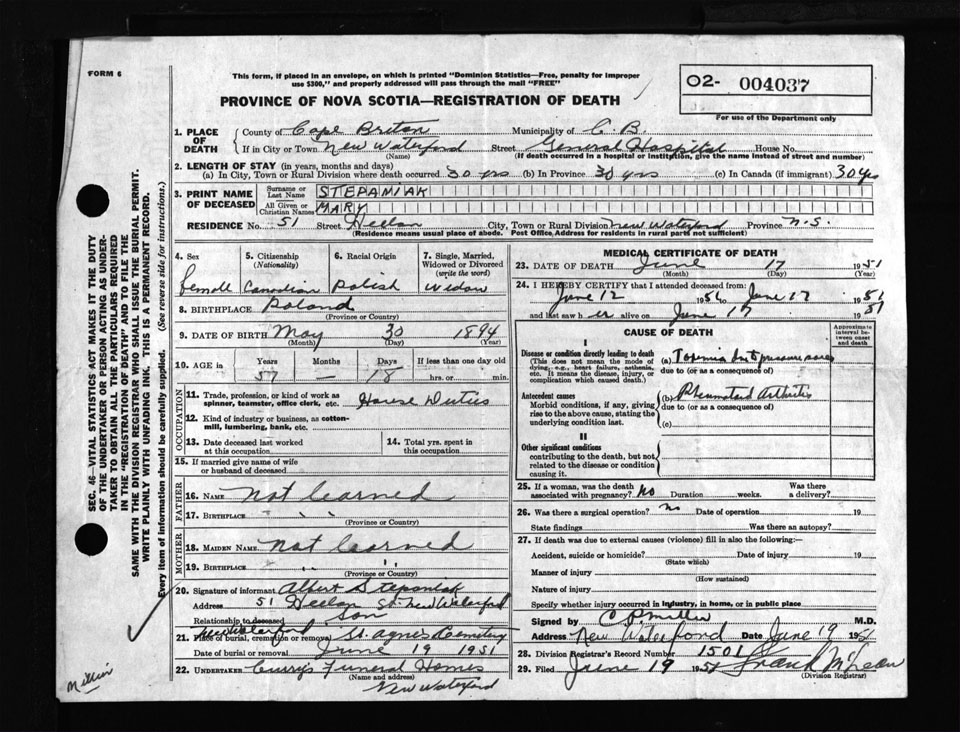 FORM 6
This form, if placed in an envelope, on which is printed "Dominion Statistics—Free, penalty for improper
use $300," and properly addressed will pass through the mail "FREE"
PROVINCE OF NOVA SCOTIA—REGISTRATION OF DEATH
O2- 004037
For use of the Department only
1. PLACE OF DEATH
County of Cape Breton Municipality of C. B.
If in City or Town New Waterford Street General Hospital House No.
(Name) (If death occurred in a hospital or institution, give the name instead of street and number)
2. LENGTH OF STAY (in years, months and days)
(a) In City, Town or Rural Division where death occurred 30 yrs (b) In Province 30 yrs (c) In Canada (if immigrant) 30 yrs
3. PRINT NAME OF DECEASED
Surname or Last Name STEPANIAK
All Given or Christian Names MARY
RESIDENCE No. 51 Street Heelan City, Town or Rural Division New Waterford Province N.S.
(Residence means usual place of abode. Post Office Address for residents in rural parts not sufficient)
4. Sex female
5. Citizenship (Nationality) Canadian
6. Racial Origin Polish
7. Single, Married, Widowed or Divorced (write the word) Widow
8. BIRTHPLACE Poland
(Province or Country)
9. DATE OF BIRTH May 30 1894
(Month) (Day) (Year)
10. AGE Years 57 Months — Days 18 If less than one day old hrs. or min.
OCCUPATION
11. Trade, profession, or kind of work as spinner, teamster, office clerk, etc. House Duties
12. Kind of industry or business, as cotton-mill, lumbering, bank, etc.
13. Date deceased last worked at this occupation
14. Total yrs. spent in this occupation
15. If married give name of wife or husband of deceased
FATHER
16. NAME Not learned
17. BIRTHPLACE " "
(Province or Country)
MOTHER
18. MAIDEN NAME Not learned
19. BIRTHPLACE " "
(Province or Country)
20. Signature of informant Albert Stepaniak
Address 51 Heelan St. New Waterford
Relationship to deceased Son
21. Place of burial, cremation or removal New Waterford St. Agnes Cemetery
Date of burial or removal June 19 1951
22. UNDERTAKER Curry's Funeral Homes
(Name and address)
New Waterford
MEDICAL CERTIFICATE OF DEATH
23. DATE OF DEATH June 17 1951
(Month) (Day) (Year)
24. I HEREBY CERTIFY that I attended deceased from:
June 12 1951 to June 17 1951
and last saw her alive on June 17 1951
CAUSE OF DEATH
Approximate interval between onset and death
I
Disease or condition directly leading to death
(This does not mean the mode of dying, e.g., heart failure, asthenia, etc. It means the disease, injury, or complication which caused death.)
(a) Toxemia due to pressure sores
due to (or as a consequence of)
Antecedent causes
Morbid conditions, if any, giving rise to the above cause, stating the underlying condition last.
(b) Rheumatoid Arthritis
due to (or as a consequence of)
(c)
II
Other significant conditions
contributing to the death, but not related to the disease or condition causing it.
25. If a woman, was the death associated with pregnancy? no Duration weeks. Was there a delivery?
26. Was there a surgical operation? no Date of operation 19
State findings Was there an autopsy?
27. If death was due to external causes (violence) fill in also the following:—
Accident, suicide or homicide? Date of injury 19
(State which)
Manner of injury
(How sustained)
Nature of injury
Specify whether injury occurred in industry, in home, or in public place
Signed by C P Miller M.D.
Address New Waterford Date June 19 1951
28. Division Registrar's Record Number 1501
29. Filed June 19 1951 Frank McLean
(Division Registrar)
SEC. 46—VITAL STATISTICS ACT MAKES IT THE DUTY
OF THE UNDERTAKER OR PERSON ACTING AS UNDER-
TAKER TO OBTAIN ALL THE PARTICULARS REQUIRED
IN THE "REGISTRATION OF DEATH" AND TO FILE THE
SAME WITH THE DIVISION REGISTRAR WHO SHALL ISSUE THE BURIAL PERMIT.
WRITE PLAINLY WITH UNFADING INK. THIS IS A PERMANENT RECORD.
Every item of information should be carefully supplied. (See reverse side for instructions.)